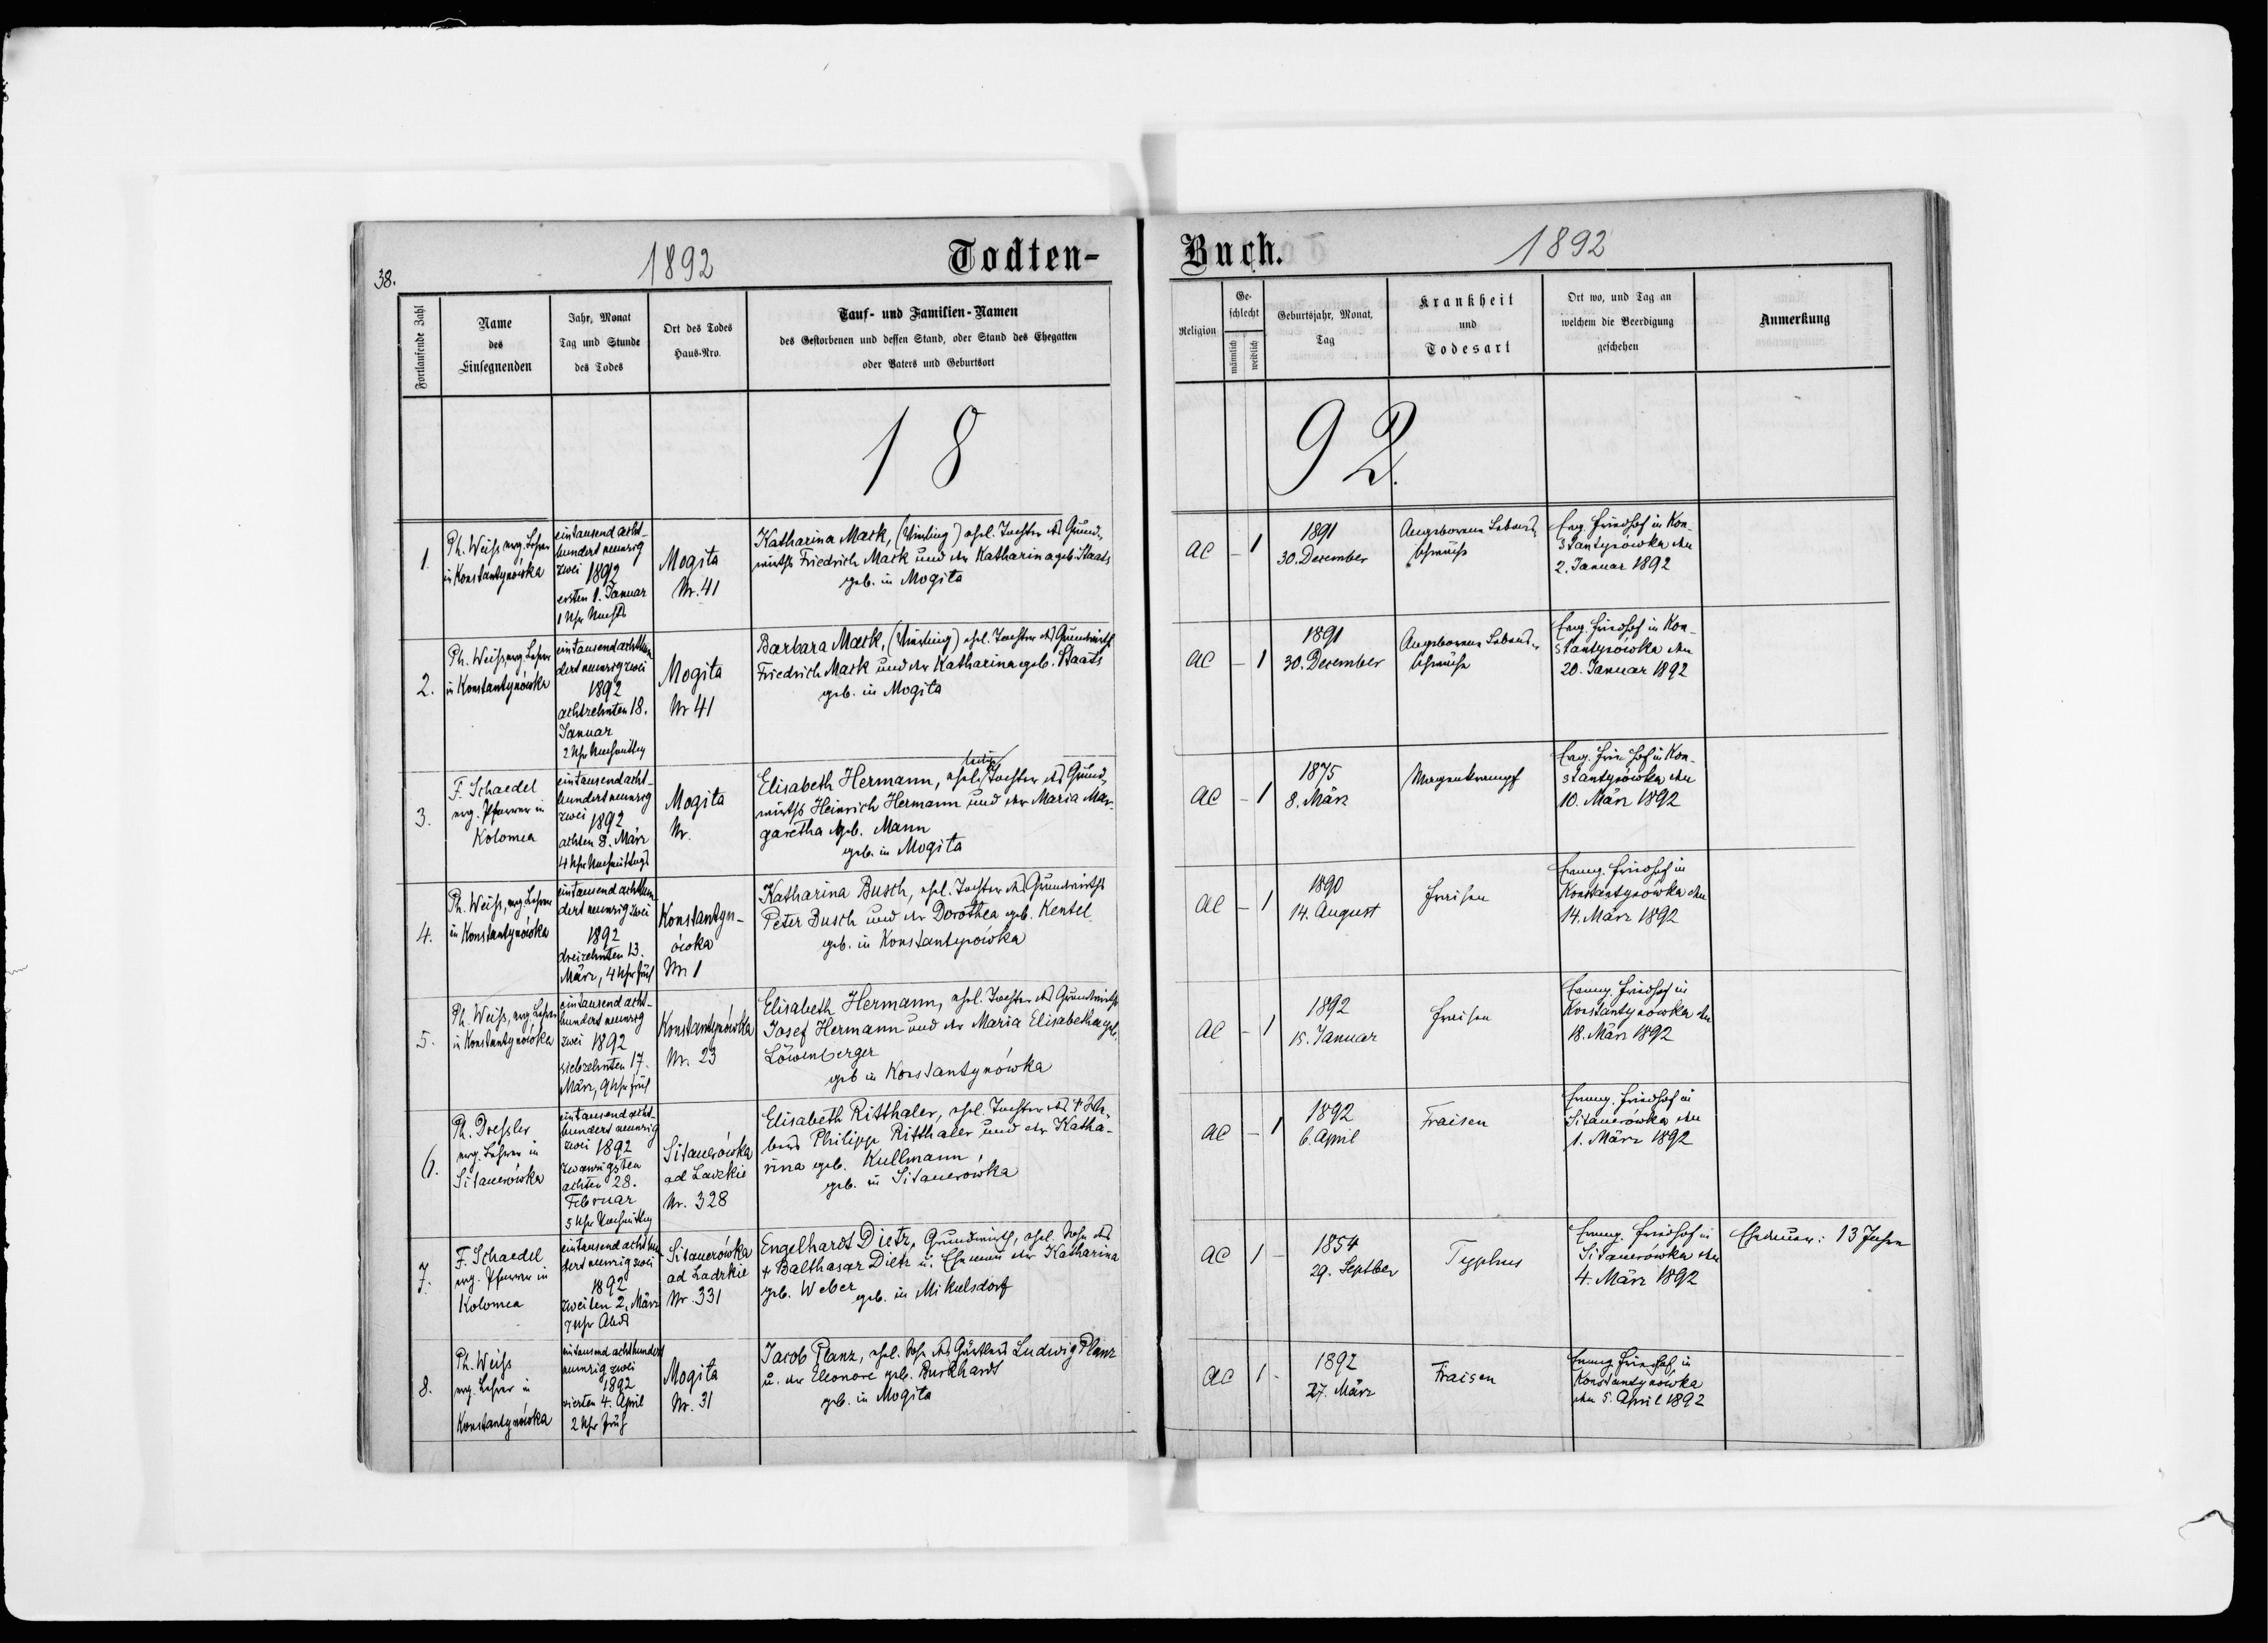 38.
1892
Todten-
Fortlaufende Zahl
Name
des
Einsegnenden
Jahr, Monat
Tag und Stunde
des Todes
Ort des Todes
Haus-Nro.
Tauf- und Familien-Namen
des Gestorbenen und dessen Stand, oder Stand des Ehegatten
oder Vaters und Geburtsort
18
1.
Ph. Weiß evg. Lehrer
in Konstantynówka
eintausend acht-
hundert neunzig
zwei 1892
ersten 1. Januar
1 Uhr Nachts
Mogita
Nr. 41
Katharina Mack, (Zwilling) ehel. Tochter des Grund-
wirths Friedrich Mack und der Katharina geb. Staats
geb. in Mogita
2.
Ph. Weiß evg. Lehrer
in Konstantynówka
eintausend achthun
dert neunzig zwei
1892
achtzehnten 18.
Januar
2 Uhr Nachmittag
Mogita
Nr 41
Barbara Mack, (Zwilling) ehel. Tochter des Grundwirths
Friedrich Mack und der Katharina geb. Staats
geb. in Mogita
3.
F. Schaedel
evg. Pfarrer in
Kolomea
eintausend acht-
hundert neunzig
zwei 1892
achten 8. März
4 Uhr Nachmittags
Mogita
Nr.
ledige
Elisabeth Hermann, ehel. Tochter des Grund-
wirths Heinrich Hermann und der Maria Mar-
garetha geb. Mann
geb. in Mogita
4.
Ph. Weiß, evg. Lehrer
in Konstantynówka
eintausend achthun
dert neunzig zwei
1892
dreizehnten 13.
März, 4 Uhr früh
Konstantyn-
ówka
Nr. 1
Katharina Busch, ehel. Tochter des Grundwirths
Peter Busch und der Dorothea geb. Kentel
geb. in Konstantynówka
5.
Ph. Weiß, evg. Lehrer
in Konstantynówka
eintausend acht-
hundert neunzig
zwei 1892
siebzehnten 17.
März, 9 Uhr früh
Konstantynówka
Nr. 23
Elisabeth Hermann, ehel. Tochter des Grundwirths
Josef Hermann und der Maria Elisabetha geb.
Löwenberger
geb in Konstantynówka
6.
Ph. Dreßler
evg. Lehrer in
Sitauerówka
eintausend acht-
hundert neunzig
zwei 1892
zwanzigsten
achten 28.
Februar
5 Uhr Nachmittag
Sitauerówka
ad Ladzkie
Nr. 328
Elisabeth Ritthaler, ehel. Tochter des †
Philipp Ritthaler und der Katha-
rina geb. Kullmann,
geb. in Sitauerówka
7.
F. Schaedel
evg. Pfarrer in
Kolomea
eintausend achthun
dert neunzig zwei
1892
zweiten 2. März
7 Uhr Abds
Sitauerówka
ad Ladzkie
Nr. 331
Engelhardt Dietz, Grundwirth, ehel. Sohn des
† Balthasar Dietz u. Ehemann der Katharina
geb. Weber
geb. in Mikulsdorf
8.
Ph. Weiß
evg. Lehrer in
Konstantynówka
eintausend achthundert
neunzig zwei
1892
vierten 4. April
2 Uhr früh
Mogita
Nr. 31
Jacob Planz, ehel. Sohn des Gärtlers Ludwig Planz
u. der Eleonore geb. Burkhardt
geb. in Mogita
Buch.
1892
Religion
Ge-
schlecht
männlich
weiblich
Geburtsjahr, Monat,
Tag
Krankheit
und
Todesart
Ort wo, und Tag an
welchem die Beerdigung
geschehen
Anmerkung
92.
AC - 1
1891
30. December
Angeborene Lebens-
schwäche
Evg. Friedhof in Kon-
stantynówka den
2. Januar 1892
AC - 1
1891
30. December
Angeborene Lebens-
schwäche
Evg. Friedhof in Kon-
stantynówka den
20. Januar 1892
AC - 1
1875
8. März
Magenkrampf
Evg. Friedhof in Kon-
stantynówka den
10. März 1892
AC - 1
1890
14. August
Fraisen
Evang. Friedhof in
Konstantynówka den
14. März 1892
AC - 1
1892
15. Januar
Fraisen
Evang. Friedhof in
Konstantynówka den
18. März 1892
AC - 1
1892
6. April
Fraisen
Evang. Friedhof in
Sitauerówka den
1. März 1892
AC 1 -
1854
29. Septber
Typhus
Evang. Friedhof in
Sitauerówka den
4. März 1892
Ehedauer: 13 Jahre
AC 1 -
1892
27. März
Fraisen
Evang Friedhof in
Konstantynówka
den 5. April 1892